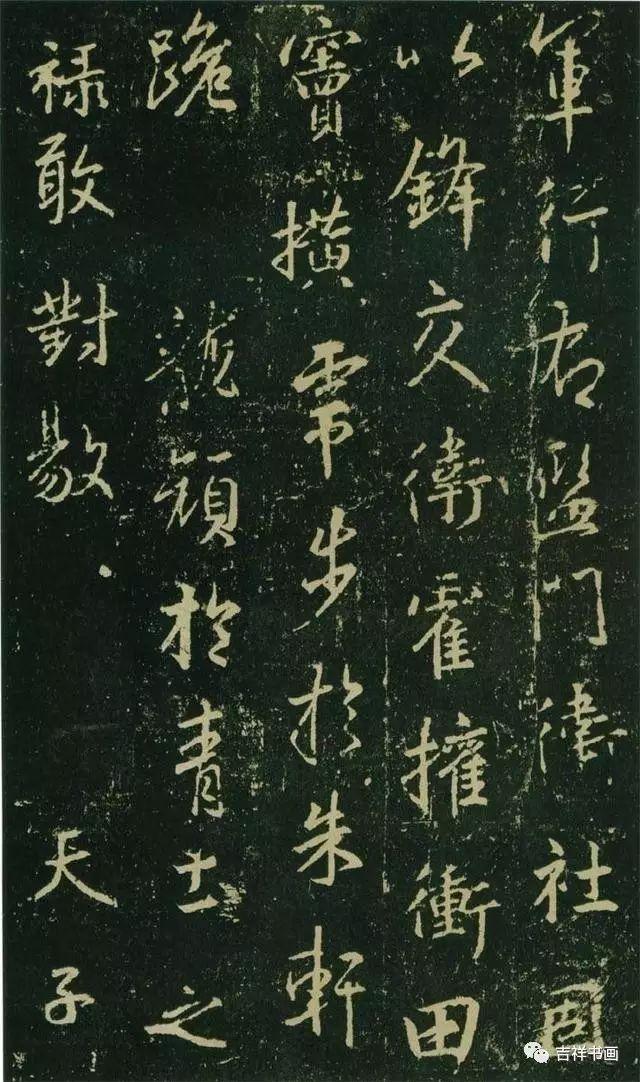 軍行右監門社
以鋒交衛霍擁衝田
竇撗帶步於朱軒
龍額於青土之
祿敢對敭 天子
吉祥书画